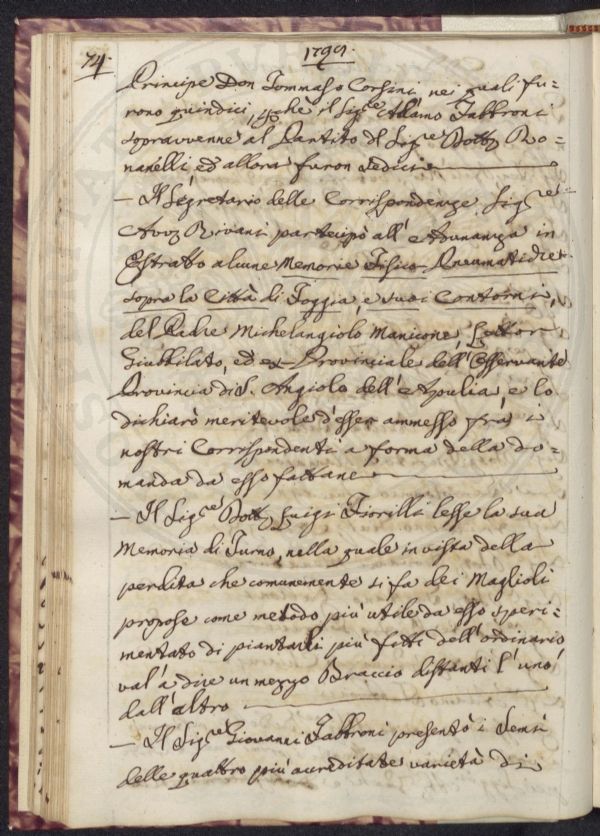 74.
1791.
Principe Don Tommaso Corsini nei quali fu=
rono quindici, che il Sig.re Adamo Fabbroni
sopravvenne al Partito del Sig.re Dott. Zo=
nanelli ed allora furon sedici
— Il Segretario delle Corrispondenze Sig.re
Avv. Rivani partecipò all'Adunanza in
Estratto alcune Memorie Fisico-Pneumatiche
sopra la Città di Foggia, e suoi Contorni,
del Padre Michelangiolo Manicone, Lettor
Giubbilato, ed ex-Provinciale dell'Osservante
Provincia di S. Angiolo dell'Apulia, e lo
dichiarò meritevole d'esser ammesso frà i
nostri Corrispondenti a forma della do=
manda da esso fattane
— Il Sig.re Dott. Luigi Fiorilli lesse la sua
Memoria di Turno, nella quale in vista della
perdita che comunemente si fa dei Maglioli
propose come metodo più utile da esso speri=
mentato di piantarli più fitti dell'ordinario
val'a dire un mezzo Braccio distanti l'uno
dall'altro
— Il Sig.re Giovanni Fabbroni presentò i Semi
delle quattro più accreditate varietà di